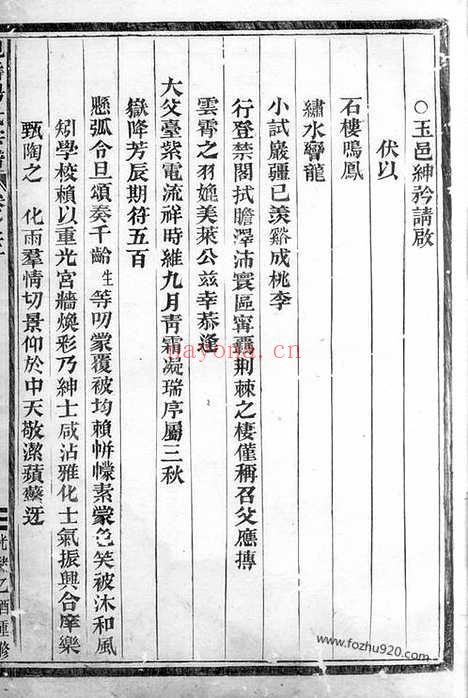 ○玉邑紳矜請啟
伏以
石樓鳴鳳
繡水彎龍
小試巖疆已羨谿成桃李
行登禁閣拭瞻澤沛寰區甯覊荆棘之棲僅稱召父應摶
雲霄之羽娩美萊公兹幸恭逢
大父臺紫電流祥時維九月青霜凝瑞序屬三秋
嶽降芳辰期符五百
懸弧令旦頌奏千齡生等叨蒙覆被均賴帡幪素蒙色笑被沐和風
矧學校賴以重光宮牆煥彩乃紳士咸沾雅化士氣振興合庠樂
甄陶之 化雨羣情切景仰於中天敬潔蘋蘩迓
光緒乙酒重修
nayona.cn
www.fozhu920.com